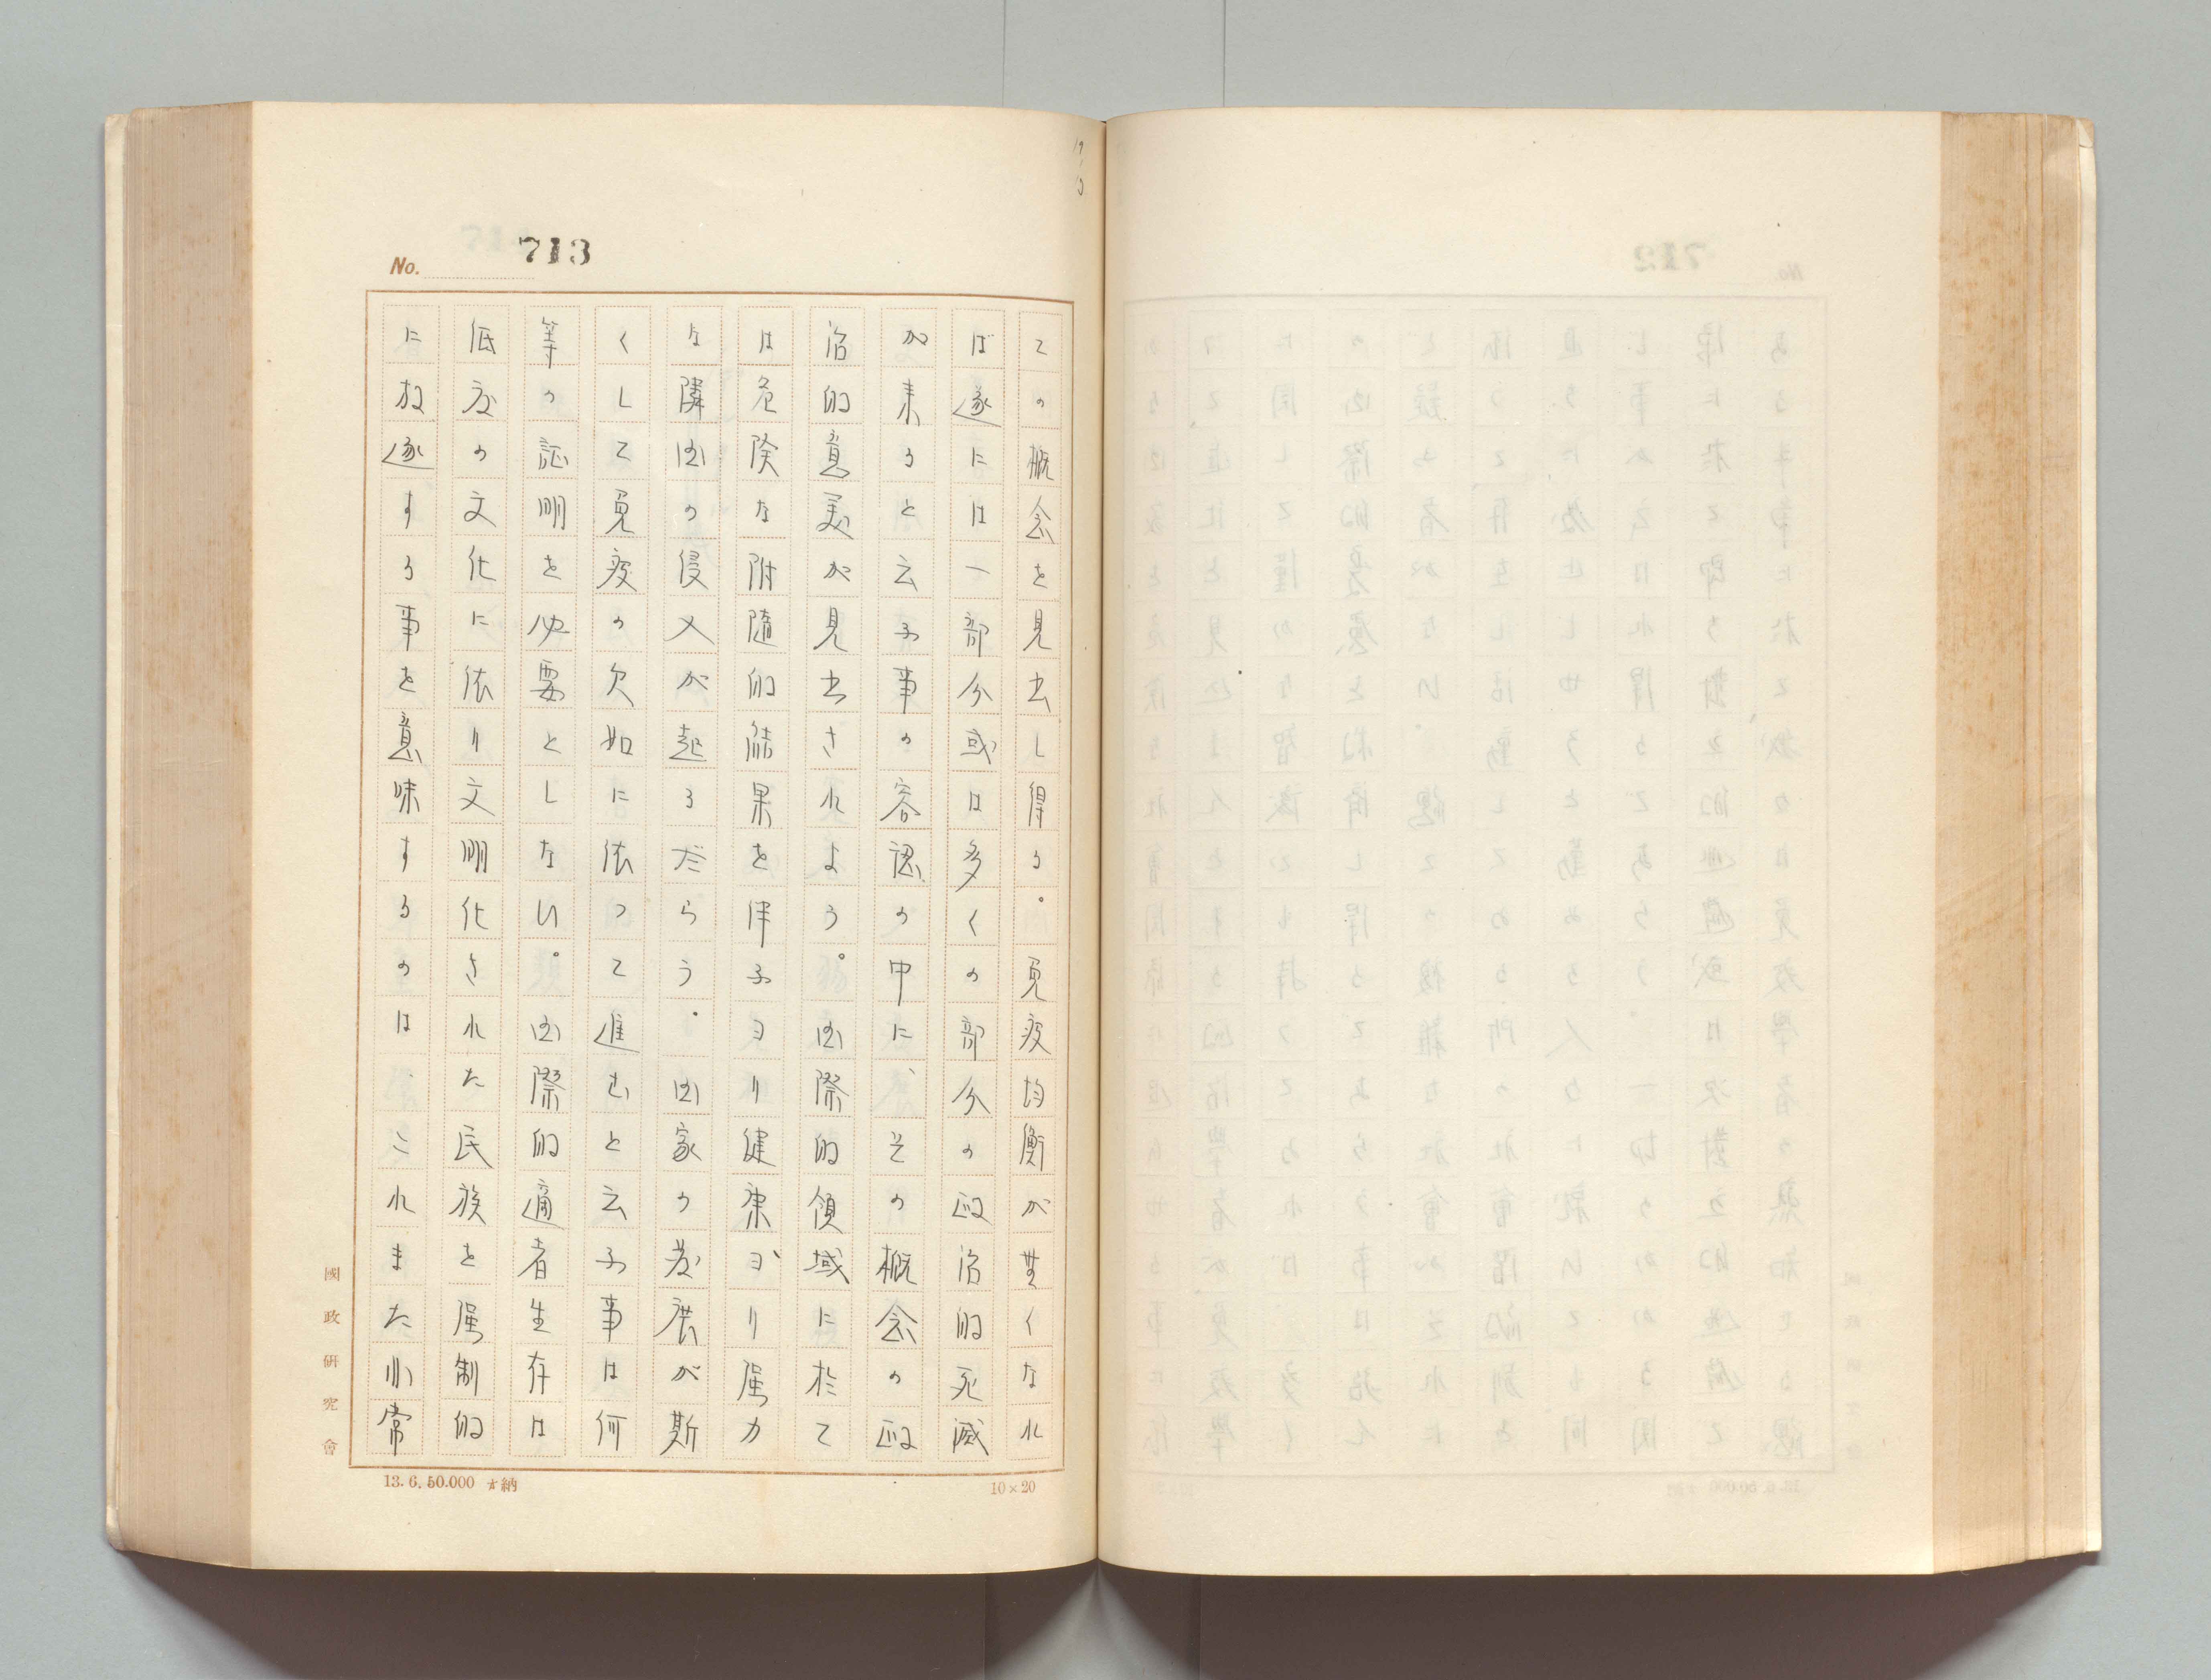 No. 713
ての概念を見出し得る。免疫均衡が無くなれ
ば遂には一部分或は多くの部分の政治的死滅
が来ると云ふ事の容認の中に、その概念の政
治的意義が見出されよう。国際的領域に於て
は危険な附随的結果を伴ふヨリ健康ヨリ強力
な隣国の侵入が起るだらう。国家の発展が斯
くして免疫の欠如に依って進むと云ふ事は何
等の証明を必要としない。国際的適者生存は
低度の文化に依り文明化された民族を強制的
に放逐する事を意味するのは、これまた小常
國政研究會
13.6.50.000 納
10×20